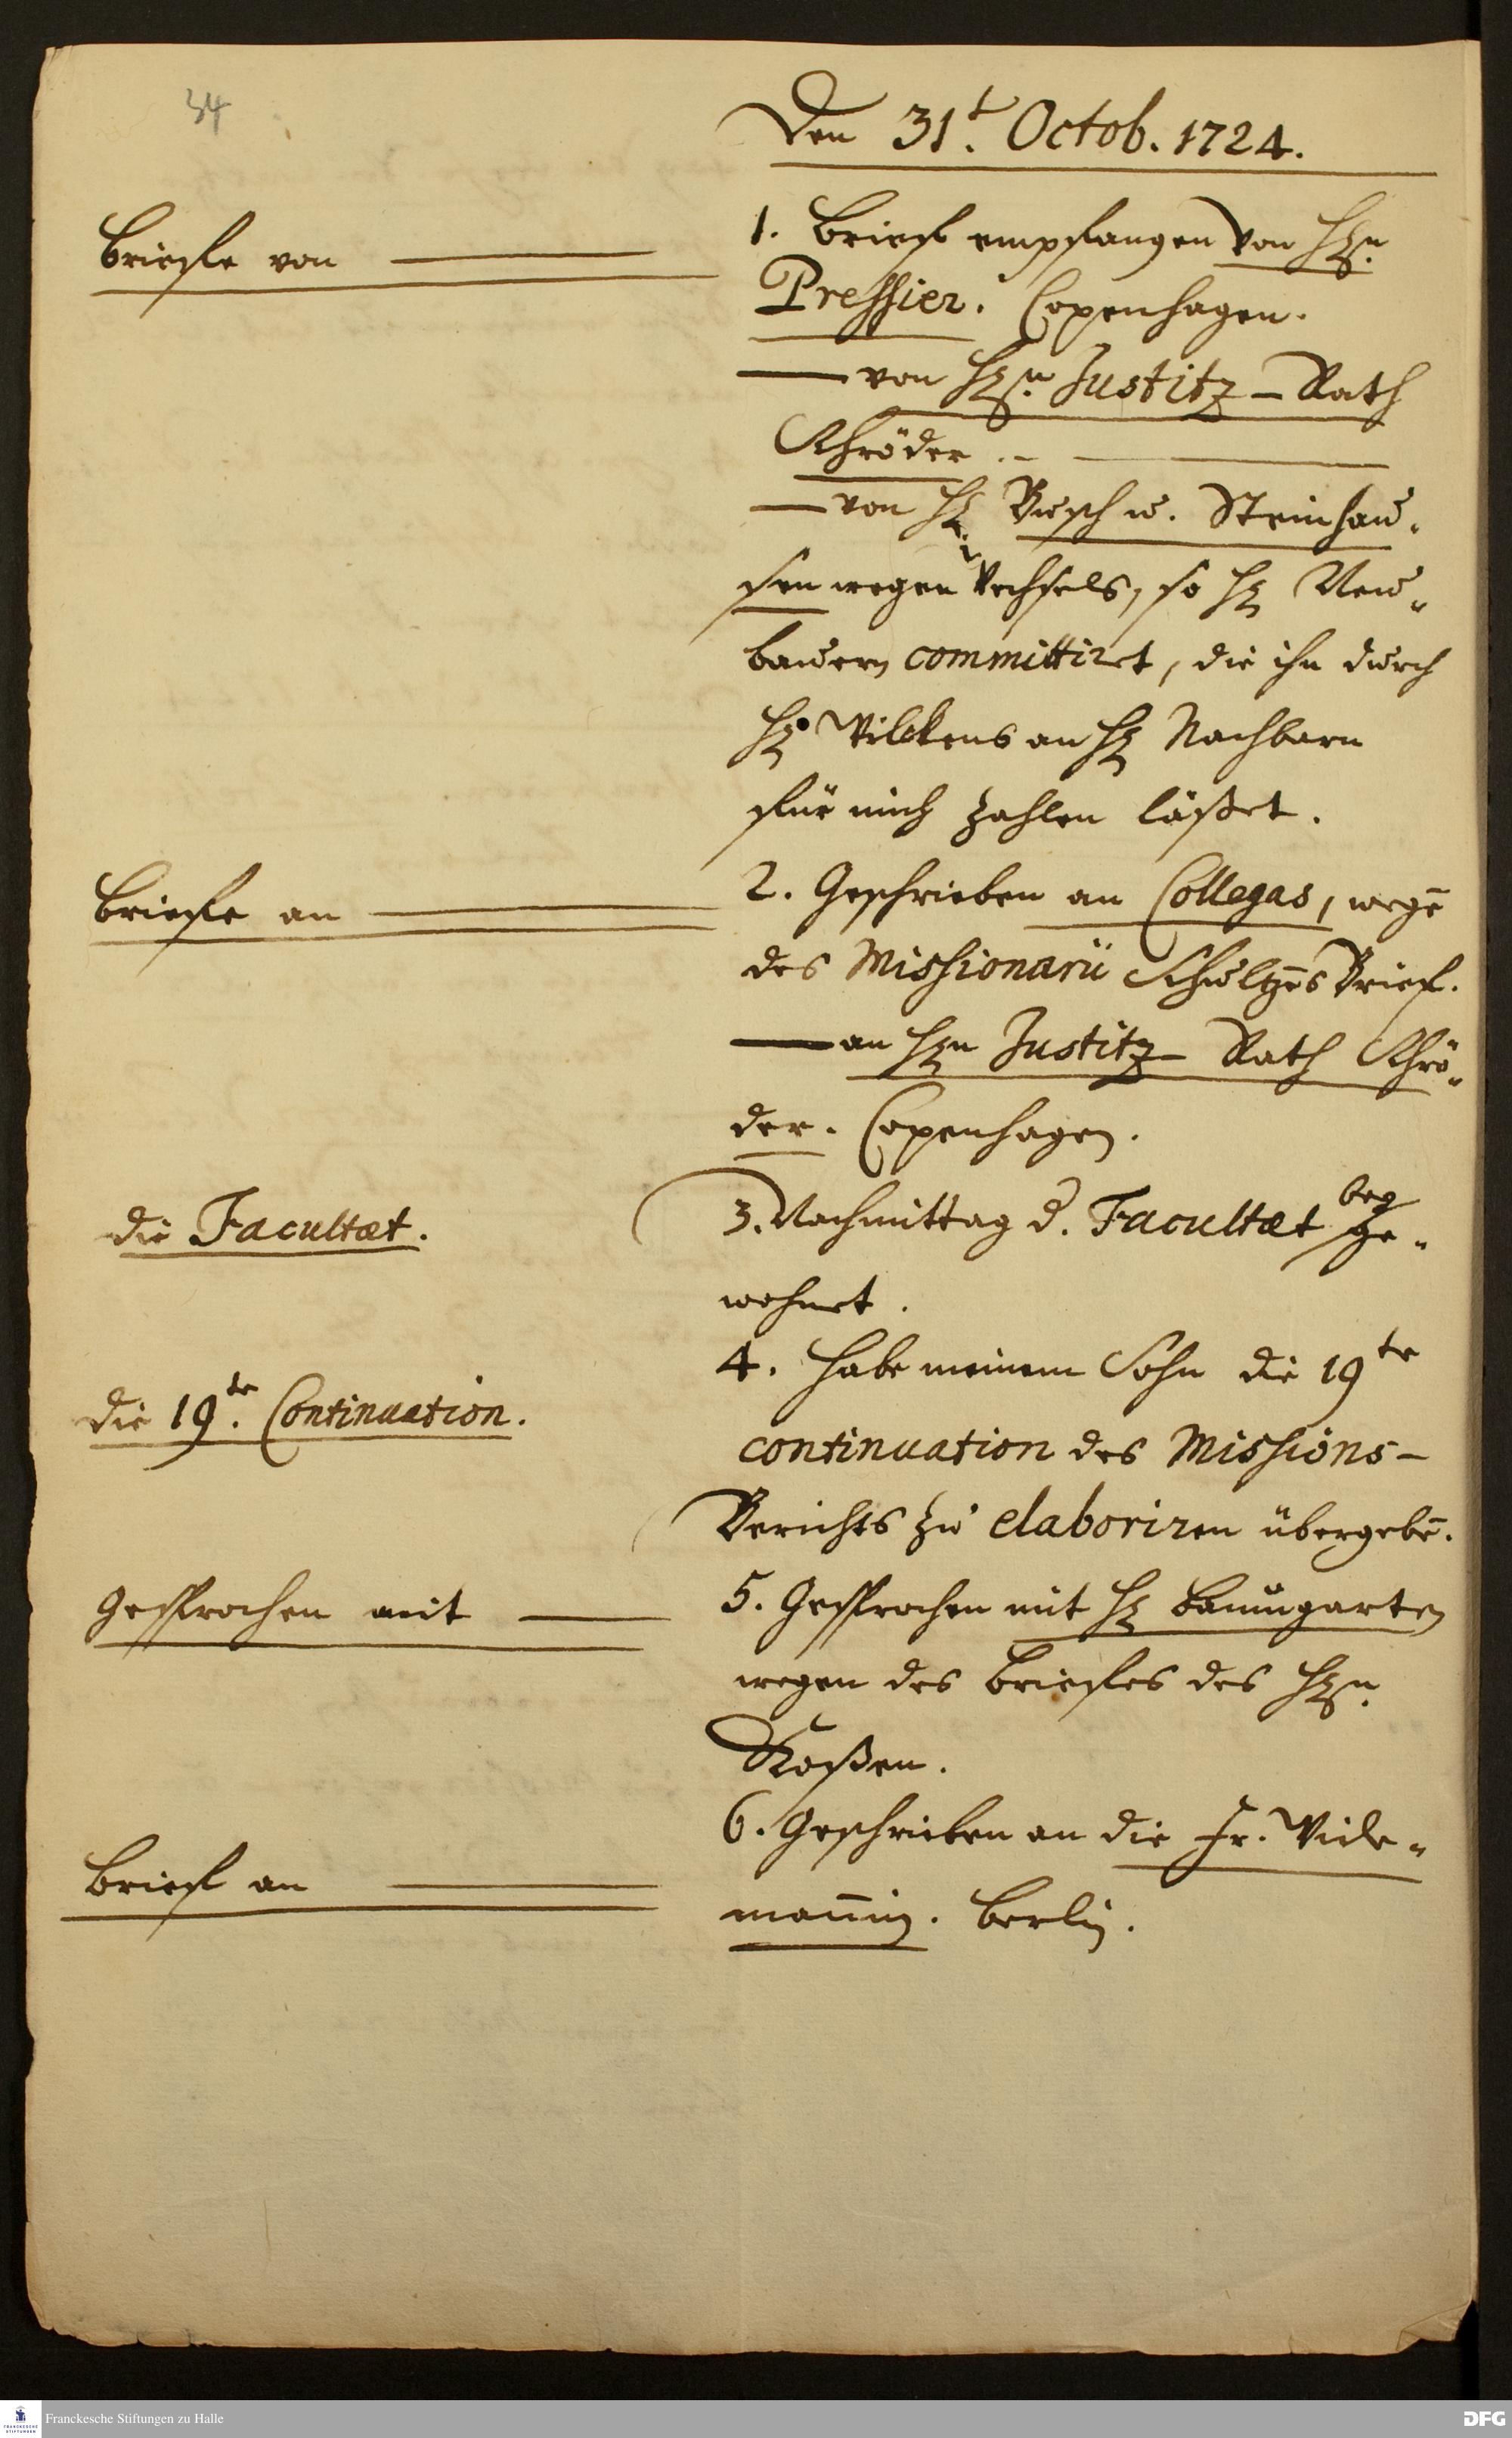 34
Den 31t. Octob. 1724.
Briefe von
1. Brief empfangen von Hrn.
Pressier. Copenhagen.
von Hrn. Justitz-Rath
Schröder.
von H. Busch u. Steinhau-
sen wegen Wechsels, so H. Neu-
bauern committiret, die ihn durch
H. Wilckens an H. Nachbarn
für mich zahlen läßet.
Briefe an
2. Geschrieben an Collegas, wegē
des Missionarii Schultzens Brief.
an Hrn Justitz-Rath Schrö-
der. Copenhagen.
die Facultæt.
3. Nachmittag d. Facultæt bey ge-
wohnet.
4. Habe meinem Sohn die 19te
die 19te. Continuation.
continuation des Missions-
Berichts zu elaboriren übergebē.
Gesprochen mit
5. Gesprochen mit H. Baumgarten
wegen des Briefes des Hrn.
6. Geschrieben an die Fr. Wide-
Brief an
mannin. Berlin.
Franckesche Stiftungen zu Halle
DFG